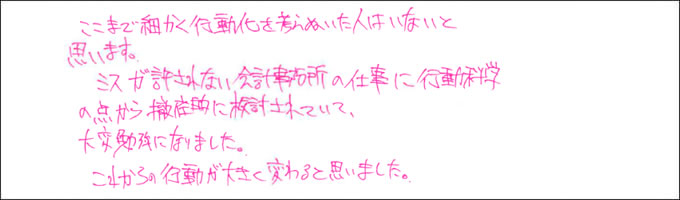 ここまで細かく行動化を考えぬいた人はいないと
思います。
ミスが許されない会計事務所の仕事に行動科学
の点から徹底的に検討されていて、
大変勉強になりました。
これからの行動が大きく変わると思いました。